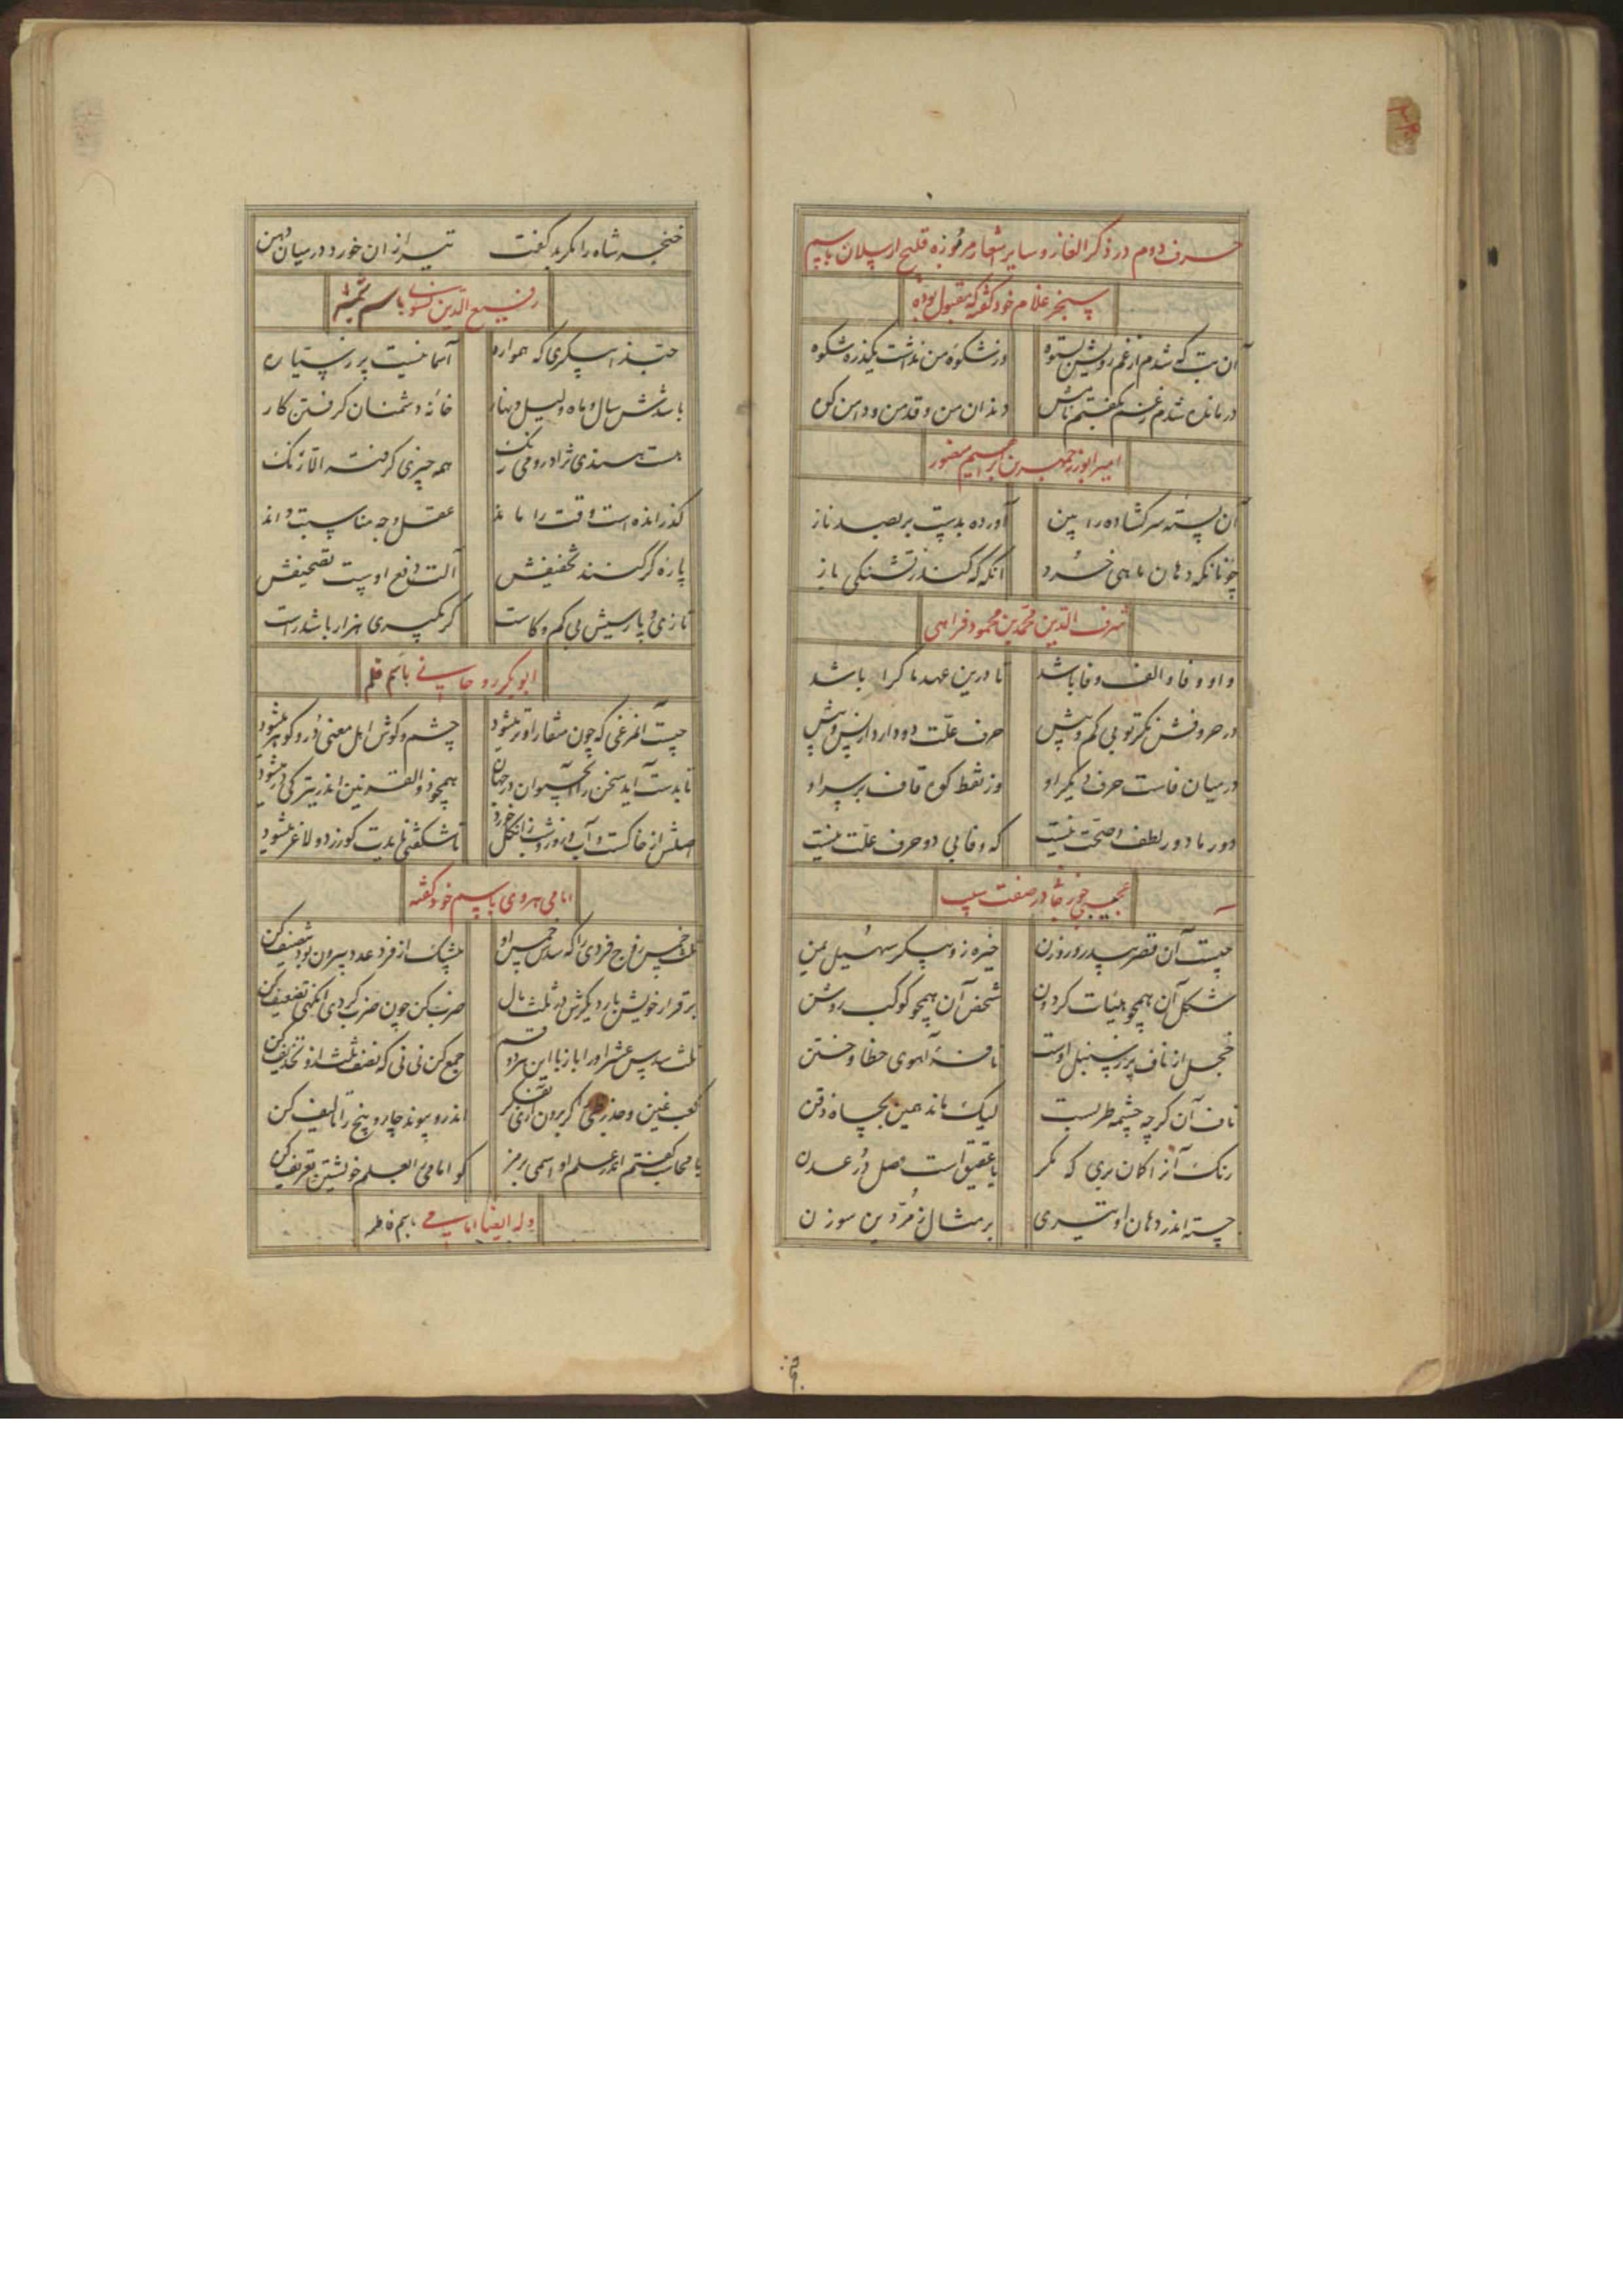 حرف دوم در ذکر الغاز و سایر اشعار مرموزه قلیج ارسلان باسم
سنجر غلام خود گفته که مقبول بوده
آن بت که شدم از غم رویش بستوه وز شکوه من نداشت یکذره شکوه
درمانده شدم ز غم بگفتم نامش دندان من و قد من و دامن کوه
امیر ابوزرجمهر بن ابراهیم منصور
آن پسته سر گشاده را بین آورده بدست بر بصد ناز
چونانکه دهان ماهی خرد آنکه که کند ز تشنگی باز
شرف الدین محمد بن محمود فراهی
واو و فا و الف وفا باشد تا درین عهد ما کرا باشد
در حروفش نگر تو بی کم و بیش حرف علت دو دارد از پس و پیش
در میان فاست حرف دیگر او وز نقط کوه قاف بر سر او
دور ما دور لطف و صحت نیست که وفا بی دو حرف علت نیست
در صفت سیب
چیست آن قصر بی در و روزن خیره زو پیکر سهیل یمن
شکل آن همچو هیأت گردون شخص آن همچو کوکب روشن
خجل از ناف پر ز سنبل اوست نافه آهوی خطا و ختن
ناف آن گرچه چشمه طربست لیک ماند همین بچاه ذقن
رنگ آنرا کمان بری که مگر با عقیق است وصل در عدن
جسته اندر دهان او تیری بر مثال زمردین سوزن
خنجر شاه را مگر بد گفت تیر از آن خورد در میان دهن
رفیع الدین باسم
حبذا سکری که همواره آسمانیست پر ز سیاره
باشدش سال و ماه و لیل و نهار خانه دشمنان گرفتن کار
هست هندی نژاد رومی رنگ همه چیزی گرفته الا زنگ
گذرانده است وقت را ماند عقل وجه مناسبت داند
پاره گر کنند تخفیفش آلت دفع اوست تصحیفش
تازی و پارسیش بی کم و کاست گر بگیری هزار باشد راست
ابوبکر روحانی باسم قلم
چیست آن مرغی که چون منقار او تر میشود چشم و گوش اهل معنی زو پر گوهر میشود
تا بدست آید سخن را آب حیوان در جهان همچو ذوالقرنین اندر تیرگی در میشود
اصلش از خاکست و آب و روز و شب زان گل خورد تا شگفتی نایدت گو زرد و لاغر میشود
امامی هروی باسم خود گفته
ثلث خمس زوج فردی را که سدس خمس او بیشک از فرد عدد بیرون بود تنصیف کن
بر قرار خویش بار دیگرش در ثلث مال ضرب کن چون ضرب کردی آنگهی تضعیف کن
ثلث سدس عشر او را باز با این هر دو قسم جمع کن نی نی که نصف ثلث ازو تحذیف کن
کعب غین و جذر بی گر برون آری بفکر اندرو پیوند چار و پنج را تألیف کن
با محاسب گفتم اندر علم او اسمی برمز گو امامی را بعلم خویشتن تعریف کن
وله ایضا امامی باسم فاطمه